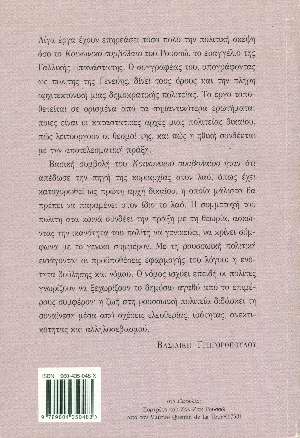 Λίγα έργα έχουν επηρεάσει τόσο πολύ την πολιτική σκέψη
όσο το Κοινωνικό συμβόλαιο του Ρουσσώ, το ευαγγέλιο της
Γαλλικής Επανάστασης. Ο συγγραφέας του, υπογράφοντας
ως πολίτης της Γενεύης, δίνει τους όρους και την πλήρη
αρχιτεκτονική μιας δημοκρατικής πολιτείας. Το έργο τοπο-
θετείται σε ορισμένα από τα σημαντικότερα ερωτήματα:
ποιες είναι οι καταστατικές αρχές μιας πολιτείας δικαίου,
πώς λειτουργούν οι θεσμοί της, και πώς η ηθική συνδέεται
με την αποτελεσματική πράξη.
Βασική συμβολή του Κοινωνικού συμβολαίου ήταν ότι
απέδωσε την πηγή της κυριαρχίας στον λαό, όπως έχει
κατοχυρωθεί ως πρώτη αρχή δικαίου, η οποία μάλιστα θα
πρέπει να παραμένει στον ίδιο το λαό. Η συμμετοχή του
πολίτη στα κοινά συνδέει την πράξη με τη θεωρία, ασκώ-
ντας την ικανότητα του πολίτη να γενικεύει, να κρίνει σύμ-
φωνα με το γενικό συμφέρον. Με τη ρουσσωική πολιτική
εισάγονται οι προϋποθέσεις εφαρμογής του λόγου η ενό-
τητα βούλησης και νόμου. Ο νόμος ισχύει επειδή οι πολίτες
γνωρίζουν να ξεχωρίζουν το δημόσιο αγαθό από το επιμέ-
ρους συμφέρον· η ζωή στη ρουσσωική πολιτεία διδάσκει τη
συναίνεση μέσα από σχέσεις ελευθερίας, ισότητας, ανεκτι-
κότητας και αλληλοσεβασμού.
ΒΑΣΙΛΙΚΗ ΓΡΗΓΟΡΟΠΟΥΛΟΥ
ISBN 960-435-045-X
9 789604 350483
στο
του Ζαν-Ζακ Ρουσσώ
από τον Maurice Quentin de La Tour